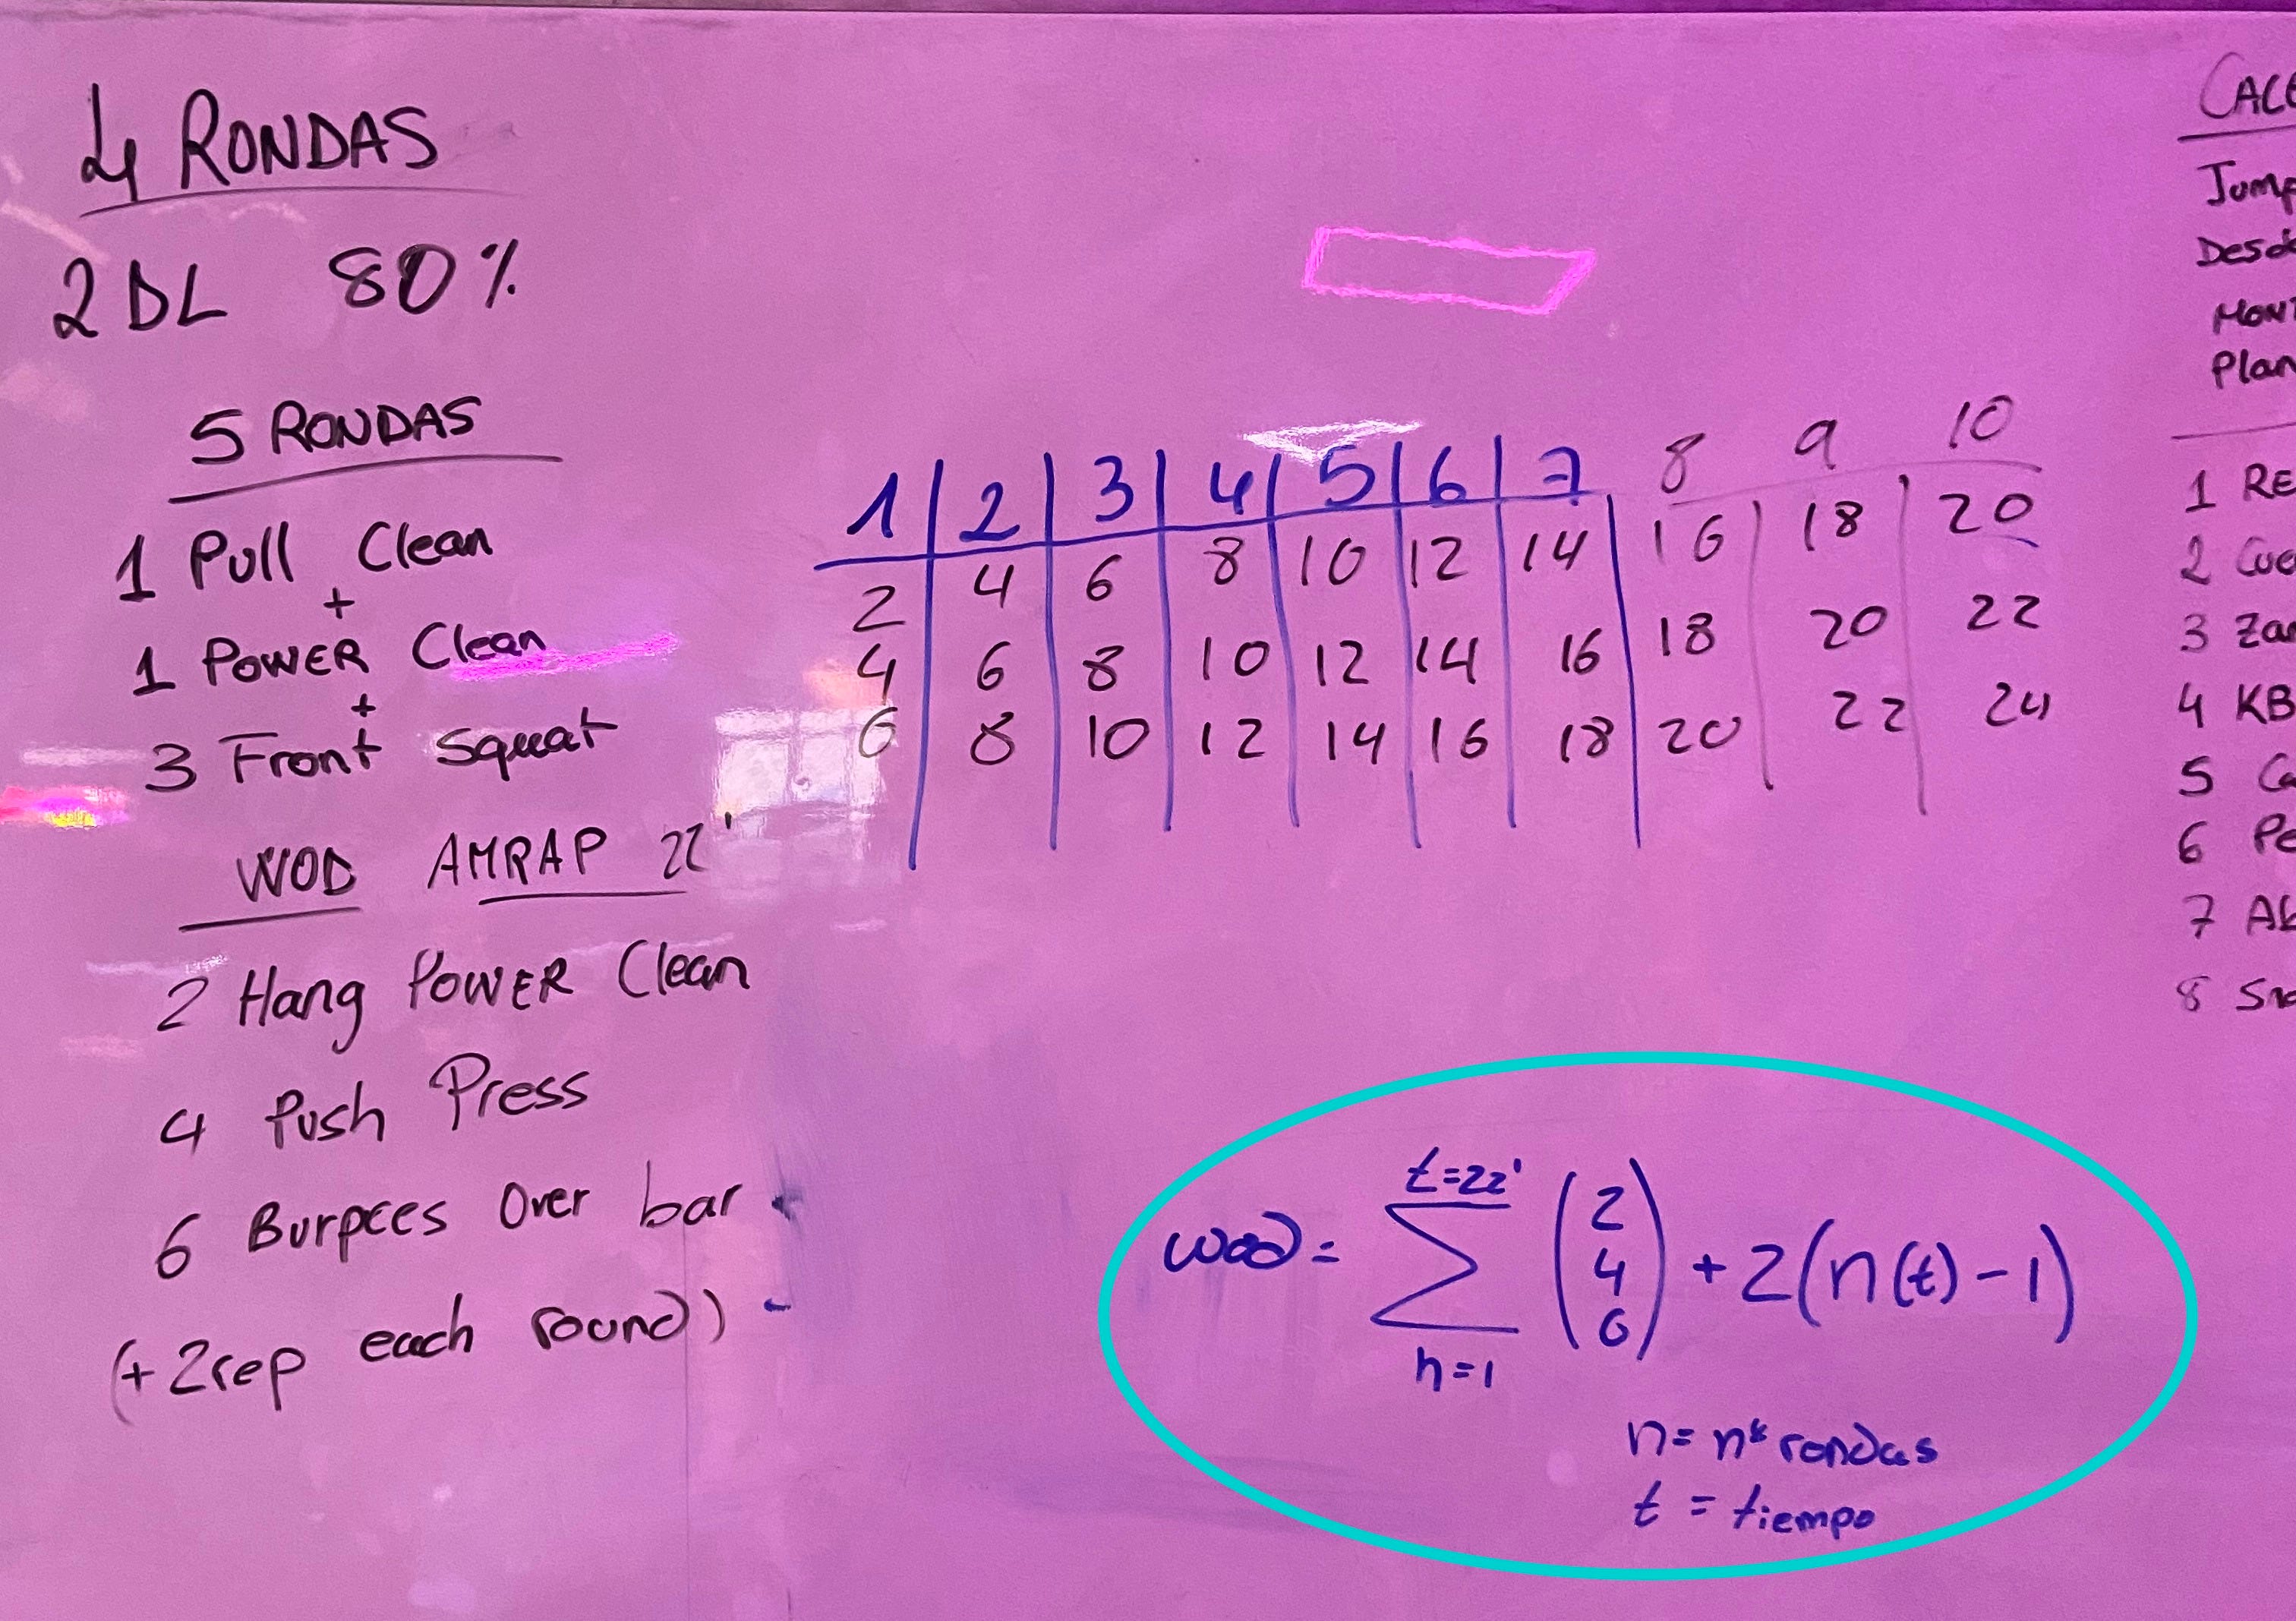 4 RONDAS
2 DL 80%
5 RONDAS
1 Pull Clean
+
1 POWER Clean
+
3 Front Squat
WOD AMRAP 22'
2 Hang POWER Clean
4 Push Press
6 Burpees Over bar
(+2rep each round)
1 2 3 4 5 6 7 8 9 10
2 4 6 8 10 12 14 16 18 20
4 6 8 10 12 14 16 18 20 22
6 8 10 12 14 16 18 20 22 24
t=22'
wod = Σ (2 4 6) + 2(n(t)-1)
n=1
n= nº rondas
t = tiempo
Jump
Plan
1 RE
2
3
4 KB
5
6
7
8